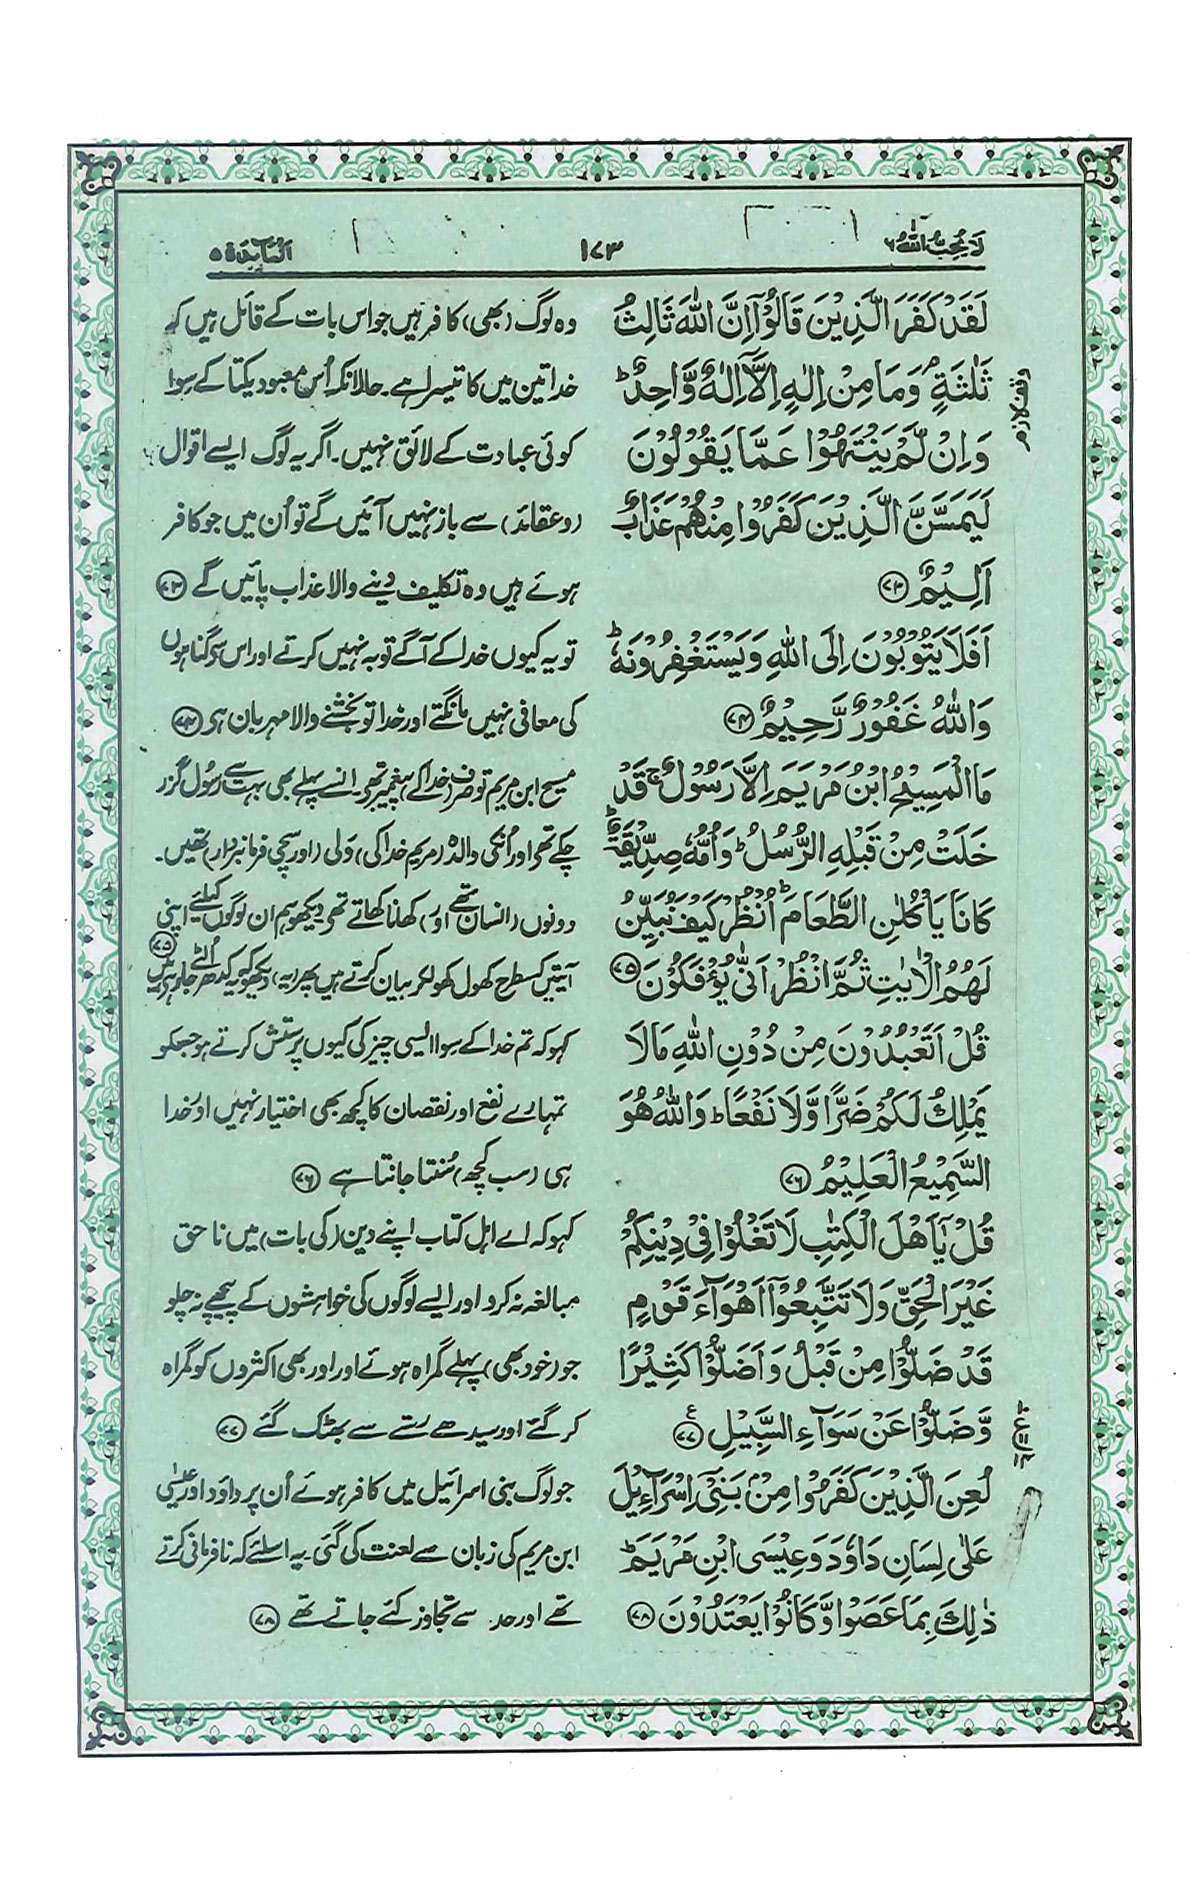 لَا يُحِبُّ اللّٰهُ ۶
۱۷۳
اَلْمَآئِدَة ۵
لَقَدْ كَفَرَ الَّذِيْنَ قَالُوْۤا اِنَّ اللّٰهَ ثَالِثُ
ثَلٰثَةٍ ۘ وَمَا مِنْ اِلٰهٍ اِلَّاۤ اِلٰهٌ وَّاحِدٌ ؕ
وَاِنْ لَّمْ يَنْتَهُوْا عَمَّا يَقُوْلُوْنَ
لَيَمَسَّنَّ الَّذِيْنَ كَفَرُوْا مِنْهُمْ عَذَابٌ
اَلِيْمٌ ۷۳
اَفَلَا يَتُوْبُوْنَ اِلَى اللّٰهِ وَيَسْتَغْفِرُوْنَهٗ ؕ
وَاللّٰهُ غَفُوْرٌ رَّحِيْمٌ ۷۴
مَا الْمَسِيْحُ ابْنُ مَرْيَمَ اِلَّا رَسُوْلٌ ۚ قَدْ
خَلَتْ مِنْ قَبْلِهِ الرُّسُلُ ؕ وَاُمُّهٗ صِدِّيْقَةٌ ؕ
كَانَا يَاْكُلٰنِ الطَّعَامَ ؕ اُنْظُرْ كَيْفَ نُبَيِّنُ
لَهُمُ الْاٰيٰتِ ثُمَّ انْظُرْ اَنّٰى يُؤْفَكُوْنَ ۷۵
قُلْ اَتَعْبُدُوْنَ مِنْ دُوْنِ اللّٰهِ مَا لَا
يَمْلِكُ لَكُمْ ضَرًّا وَّلَا نَفْعًا ؕ وَاللّٰهُ هُوَ
السَّمِيْعُ الْعَلِيْمُ ۷۶
قُلْ يٰۤاَهْلَ الْكِتٰبِ لَا تَغْلُوْا فِيْ دِيْنِكُمْ
غَيْرَ الْحَقِّ وَلَا تَتَّبِعُوْۤا اَهْوَآءَ قَوْمٍ
قَدْ ضَلُّوْا مِنْ قَبْلُ وَاَضَلُّوْا كَثِيْرًا
وَّضَلُّوْا عَنْ سَوَآءِ السَّبِيْلِ ۷۷ ع
لُعِنَ الَّذِيْنَ كَفَرُوْا مِنْۢ بَنِيْۤ اِسْرَآءِيْلَ
عَلٰى لِسَانِ دَاوٗدَ وَعِيْسَى ابْنِ مَرْيَمَ ؕ
ذٰلِكَ بِمَا عَصَوْا وَّكَانُوْا يَعْتَدُوْنَ ۷۸
وہ لوگ (بھی) کافر ہیں جو اس بات کے قائل ہیں کہ
خدا تین میں کا تیسرا ہے۔ حالانکہ اُس معبود یکتا کے سِوا
کوئی عبادت کے لائق نہیں۔ اگر یہ لوگ ایسے اقوال
(وعقائد) سے باز نہیں آئیں گے تو اُن میں جو کافر
ہوئے ہیں وہ تکلیف دینے والا عذاب پائیں گے ۷۳
تو یہ کیوں خدا کے آگے توبہ نہیں کرتے اور اس سے گناہوں
کی معافی نہیں مانگتے اور خدا تو بخشنے والا مہربان ہی ۷۴
مسیح ابن مریم تو صرف (خدا کے) پیغمبر تھے۔ اُنسے پہلے بھی بہت سے رسُول گزر
چکے تھے اور اُنکی والدہ (مریم خدا کی) ولی (اور سچی فرمانبردار) تھیں۔
دونوں (انسان تھے اور) کھانا کھاتے تھے دیکھو ہم ان لوگوں کیلئے اپنی
آیتیں کسطرح کھول کھولکر بیان کرتے ہیں پھر (یہ) دیکھو کہ یہ کدھر اُلٹے جا رہے ہیں ۷۵
کہو کہ تم خدا کے سِوا ایسی چیز کی کیوں پرستش کرتے ہو جسکو
تمہارے نفع اور نقصان کا کچھ بھی اختیار نہیں اور خدا
ہی (سب کچھ) سُنتا جانتا ہے ۷۶
کہو کہ اے اہل کتاب اپنے دین (کی بات) میں ناحق
مبالغہ نہ کرو اور ایسے لوگوں کی خواہشوں کے پیچھے نہ چلو
جو (خود بھی) پہلے گمراہ ہوئے اور اور بھی اکثروں کو گمراہ
کر گئے اور سیدھے رستے سے بھٹک گئے ۷۷
جو لوگ بنی اسرائیل میں کافر ہوئے اُن پر داؤد اور عیسٰی
ابن مریم کی زبان سے لعنت کی گئی۔ یہ اسلئے کہ نافرمانی کرتے
تھے اور حد سے تجاوز کئے جاتے تھے ۷۸
وقف لازم